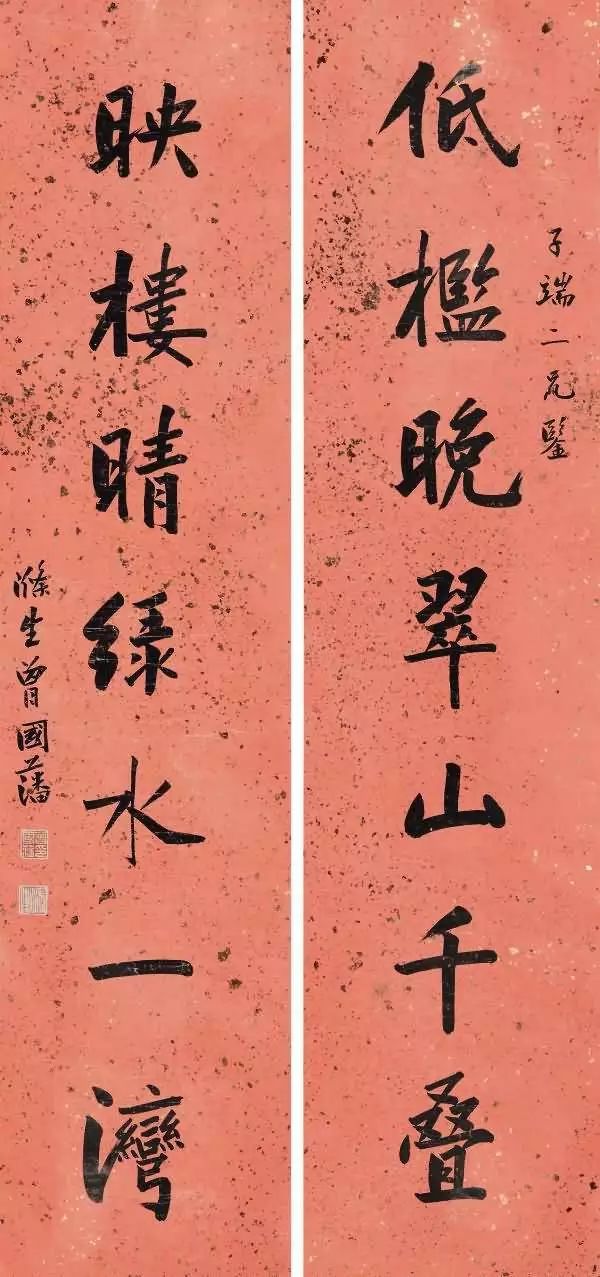 子端二兄鑒
低檻晚翠山千叠
映樓晴緑水一灣
滌生曾國藩